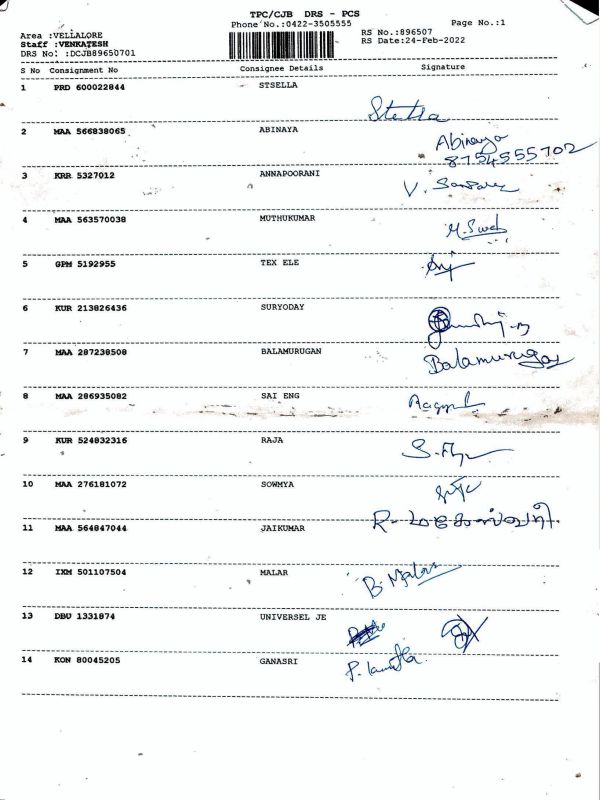 TPC/CJB DRS - PCS
Phone No.:0422-3505555
Page No.:1
Area :VELLALORE
RS No.:896507
Staff :VENKATESH
RS Date:24-Feb-2022
DRS No: :DCJB89650701
S No Consignment No Consignee Details Signature
1 PRD 600022844 STSELLA
Stella
2 MAA 566838065 ABINAYA
Abinaya
8754555702
3 KRR 5327012 ANNAPOORANI
V.
4 MAA 563570038 MUTHUKUMAR
M.
5 GPM 5192955 TEX ELE
6 KUR 213826436 SURYODAY
7 MAA 287238508 BALAMURUGAN
Balamurugan
8 MAA 286935082 SAI ENG
9 KUR 524832316 RAJA
10 MAA 276181072 SOWMYA
R. மகேஸ்வரி
11 MAA 564847044 JAIKUMAR
12 IXM 501107504 MALAR
B. Malar
13 DBU 1331874 UNIVERSEL JE
14 KON 80045205 GANASRI